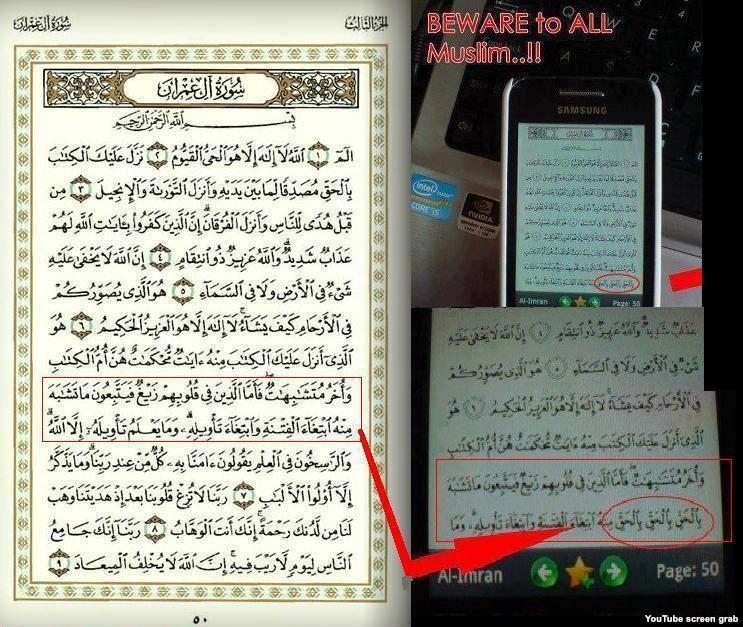 سُورَةُ آلِ عِمْرَانَ
الجُزْءُ الثَّالِثُ
سُورَةُ آلِ عِمْرَانَ
بِسْمِ اللَّهِ الرَّحْمَٰنِ الرَّحِيمِ
الٓمٓ ١ اللَّهُ لَآ إِلَٰهَ إِلَّا هُوَ الْحَيُّ الْقَيُّومُ ٢ نَزَّلَ عَلَيْكَ الْكِتَٰبَ
بِالْحَقِّ مُصَدِّقًا لِّمَا بَيْنَ يَدَيْهِ وَأَنزَلَ التَّوْرَىٰةَ وَالْإِنجِيلَ ٣ مِن
قَبْلُ هُدًى لِّلنَّاسِ وَأَنزَلَ الْفُرْقَانَ إِنَّ الَّذِينَ كَفَرُوا بِـَٔايَٰتِ اللَّهِ لَهُمْ
عَذَابٌ شَدِيدٌ وَاللَّهُ عَزِيزٌ ذُو انتِقَامٍ ٤ إِنَّ اللَّهَ لَا يَخْفَىٰ عَلَيْهِ
شَىْءٌ فِي الْأَرْضِ وَلَا فِي السَّمَآءِ ٥ هُوَ الَّذِي يُصَوِّرُكُمْ
فِي الْأَرْحَامِ كَيْفَ يَشَآءُ لَآ إِلَٰهَ إِلَّا هُوَ الْعَزِيزُ الْحَكِيمُ ٦ هُوَ
الَّذِيٓ أَنزَلَ عَلَيْكَ الْكِتَٰبَ مِنْهُ ءَايَٰتٌ مُّحْكَمَٰتٌ هُنَّ أُمُّ الْكِتَٰبِ
وَأُخَرُ مُتَشَٰبِهَٰتٌ فَأَمَّا الَّذِينَ فِي قُلُوبِهِمْ زَيْغٌ فَيَتَّبِعُونَ مَا تَشَٰبَهَ
مِنْهُ ابْتِغَآءَ الْفِتْنَةِ وَابْتِغَآءَ تَأْوِيلِهِ وَمَا يَعْلَمُ تَأْوِيلَهُ إِلَّا اللَّهُ
وَالرَّٰسِخُونَ فِي الْعِلْمِ يَقُولُونَ ءَامَنَّا بِهِ كُلٌّ مِّنْ عِندِ رَبِّنَا وَمَا يَذَّكَّرُ
إِلَّآ أُولُوا الْأَلْبَٰبِ ٧ رَبَّنَا لَا تُزِغْ قُلُوبَنَا بَعْدَ إِذْ هَدَيْتَنَا وَهَبْ
لَنَا مِن لَّدُنكَ رَحْمَةً إِنَّكَ أَنتَ الْوَهَّابُ ٨ رَبَّنَآ إِنَّكَ جَامِعُ
النَّاسِ لِيَوْمٍ لَّا رَيْبَ فِيهِ إِنَّ اللَّهَ لَا يُخْلِفُ الْمِيعَادَ ٩
٥٠
BEWARE to ALL
Muslim..!!
SAMSUNG
intel
inside
CORE i5
NVIDIA
Al-Imran
Page: 50
عَذَابٌ شَدِيدٌ وَاللَّهُ عَزِيزٌ ذُو انتِقَامٍ ٤ إِنَّ اللَّهَ لَا يَخْفَىٰ عَلَيْهِ
شَىْءٌ فِي الْأَرْضِ وَلَا فِي السَّمَآءِ ٥ هُوَ الَّذِي يُصَوِّرُكُمْ
فِي الْأَرْحَامِ كَيْفَ يَشَآءُ لَآ إِلَٰهَ إِلَّا هُوَ الْعَزِيزُ الْحَكِيمُ ٦ هُوَ
الَّذِيٓ أَنزَلَ عَلَيْكَ الْكِتَٰبَ مِنْهُ ءَايَٰتٌ مُّحْكَمَٰتٌ هُنَّ أُمُّ الْكِتَٰبِ
وَأُخَرُ مُتَشَٰبِهَٰتٌ فَأَمَّا الَّذِينَ فِي قُلُوبِهِمْ زَيْغٌ فَيَتَّبِعُونَ مَا تَشَٰبَهَ
بِالْحَقِّ بِالْحَقِّ بِالْحَقِّ مِنْهُ ابْتِغَآءَ الْفِتْنَةِ وَابْتِغَآءَ تَأْوِيلِهِ وَمَا
Al-Imran
Page: 50
YouTube screen grab